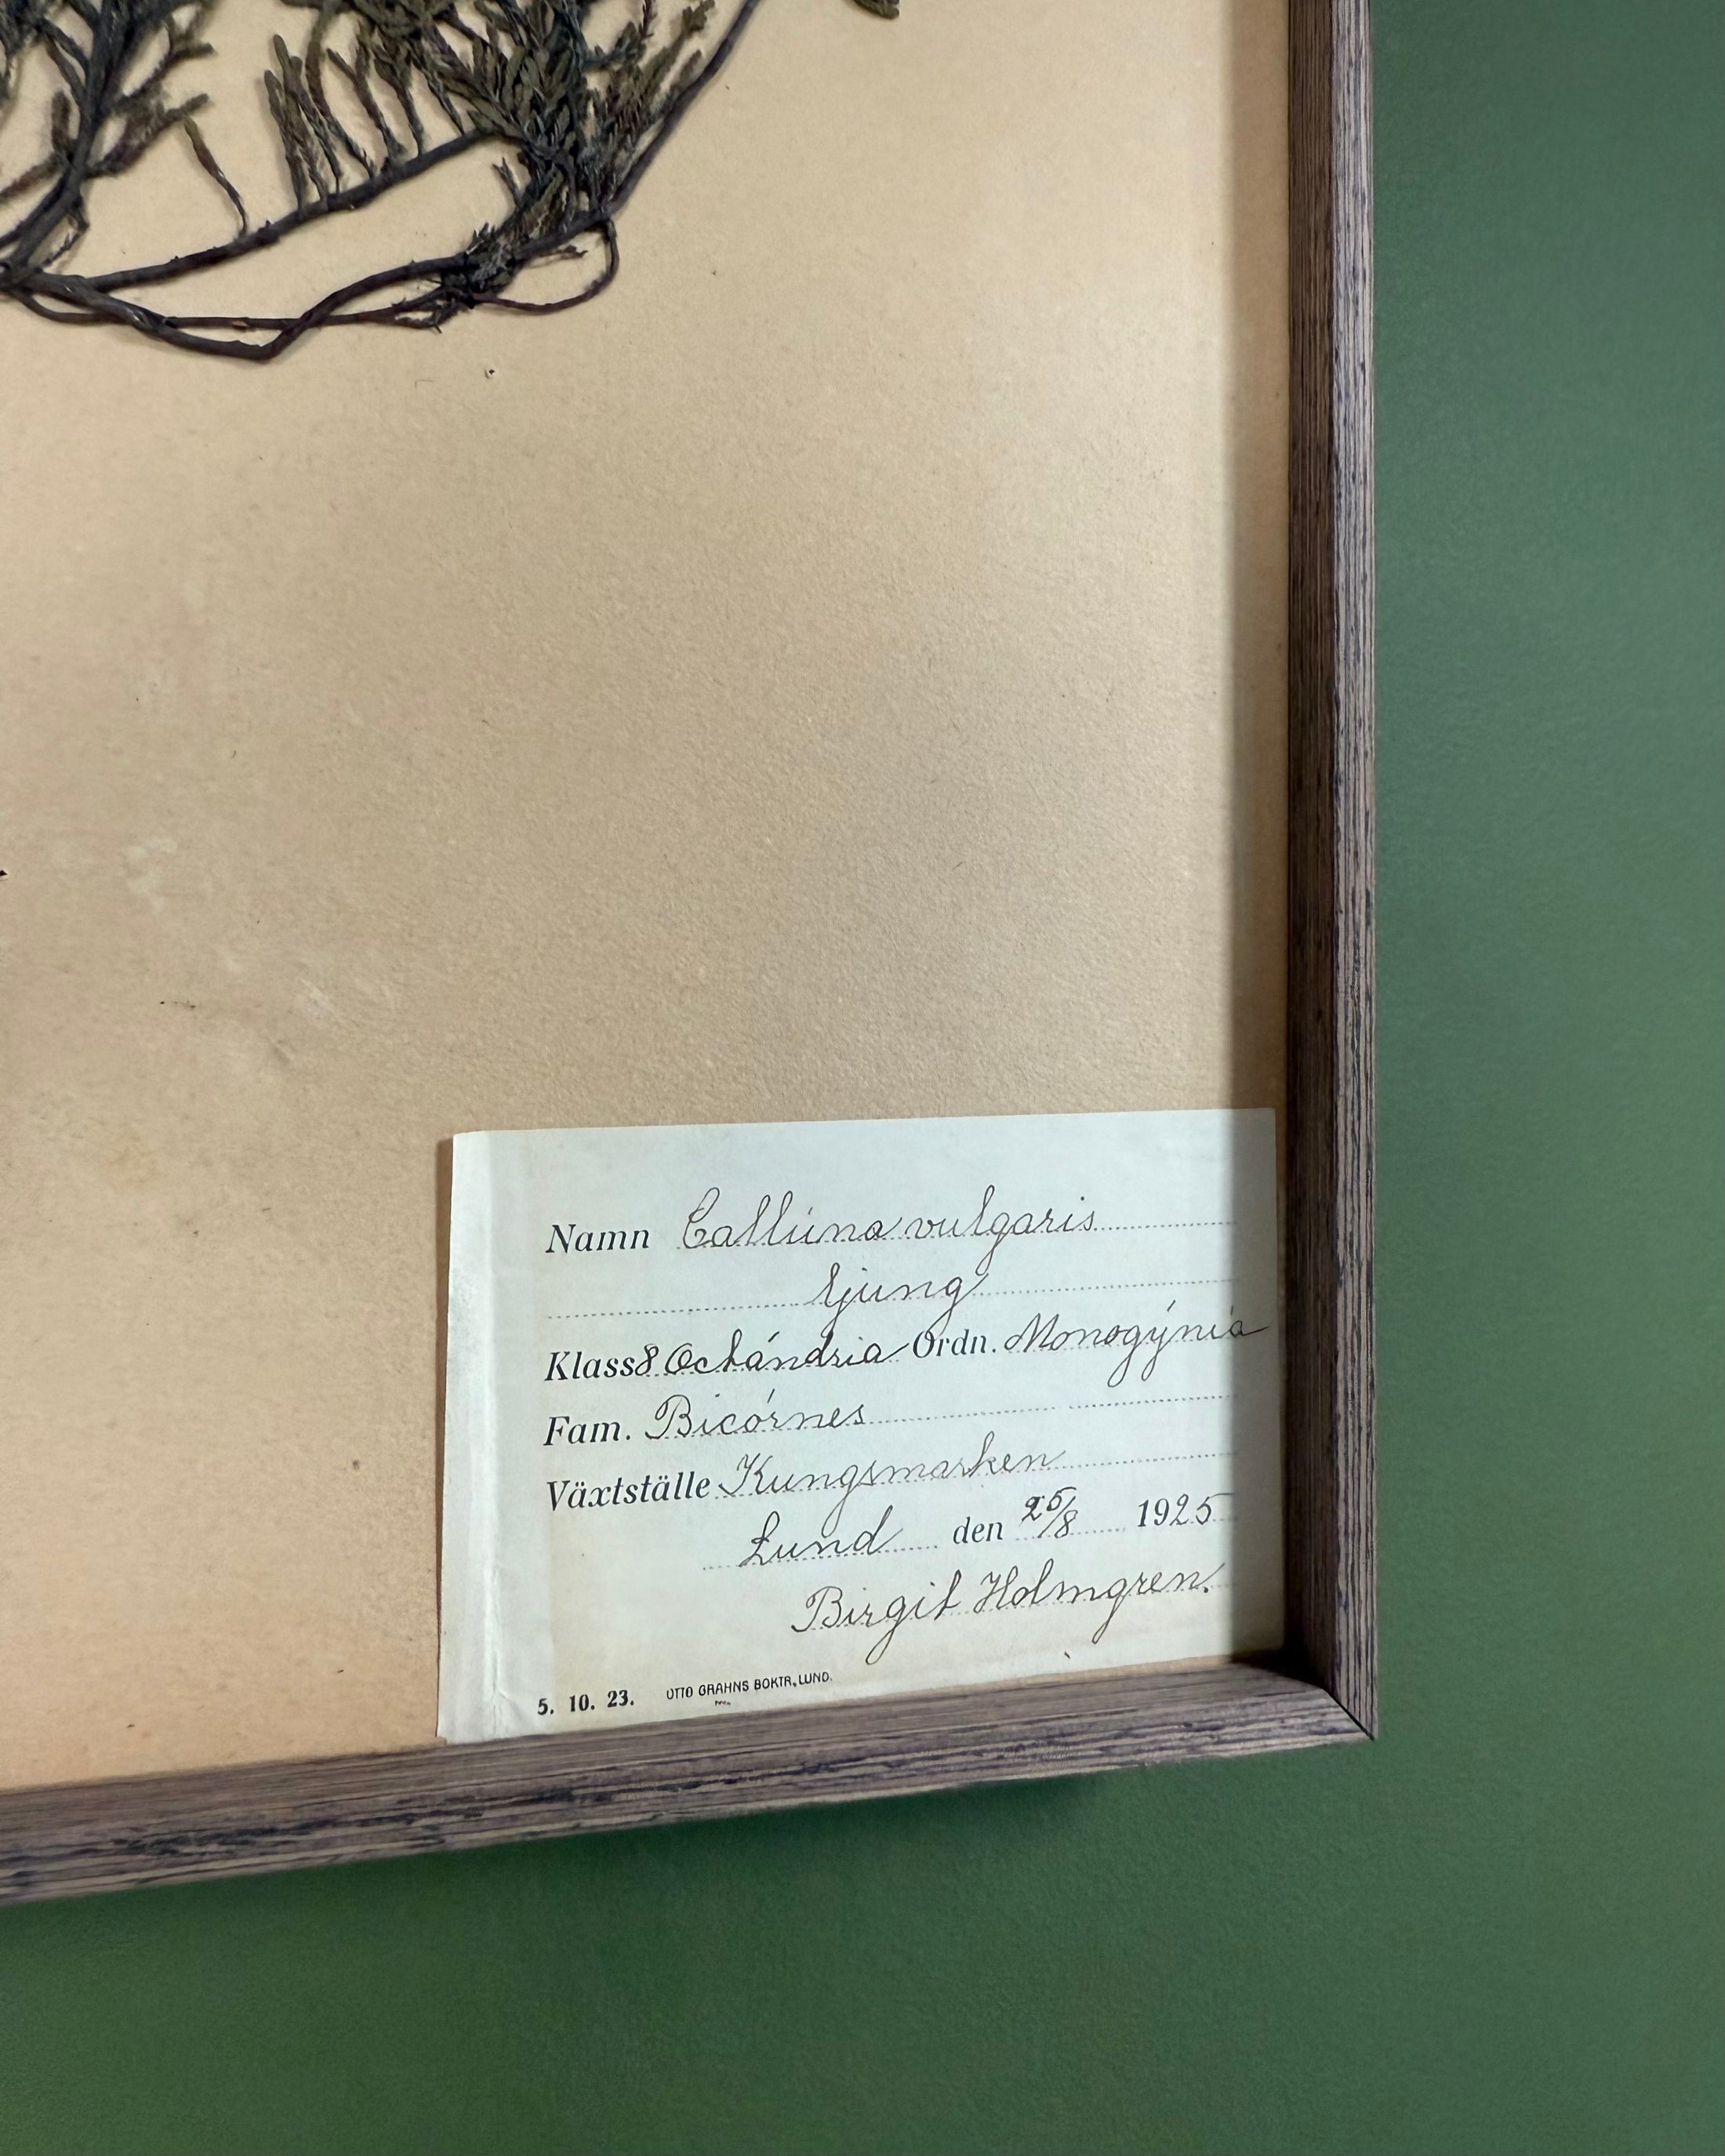 Namn Callúna vulgaris
ljung
Klass 8 Octándria Ordn. Monogýnia
Fam. Bicórnes
Växtställe Kungsmarken
Lund den 25/8 1925
Birgit Holmgren.
5. 10. 23. OTTO GRAHNS BOKTR., LUND.